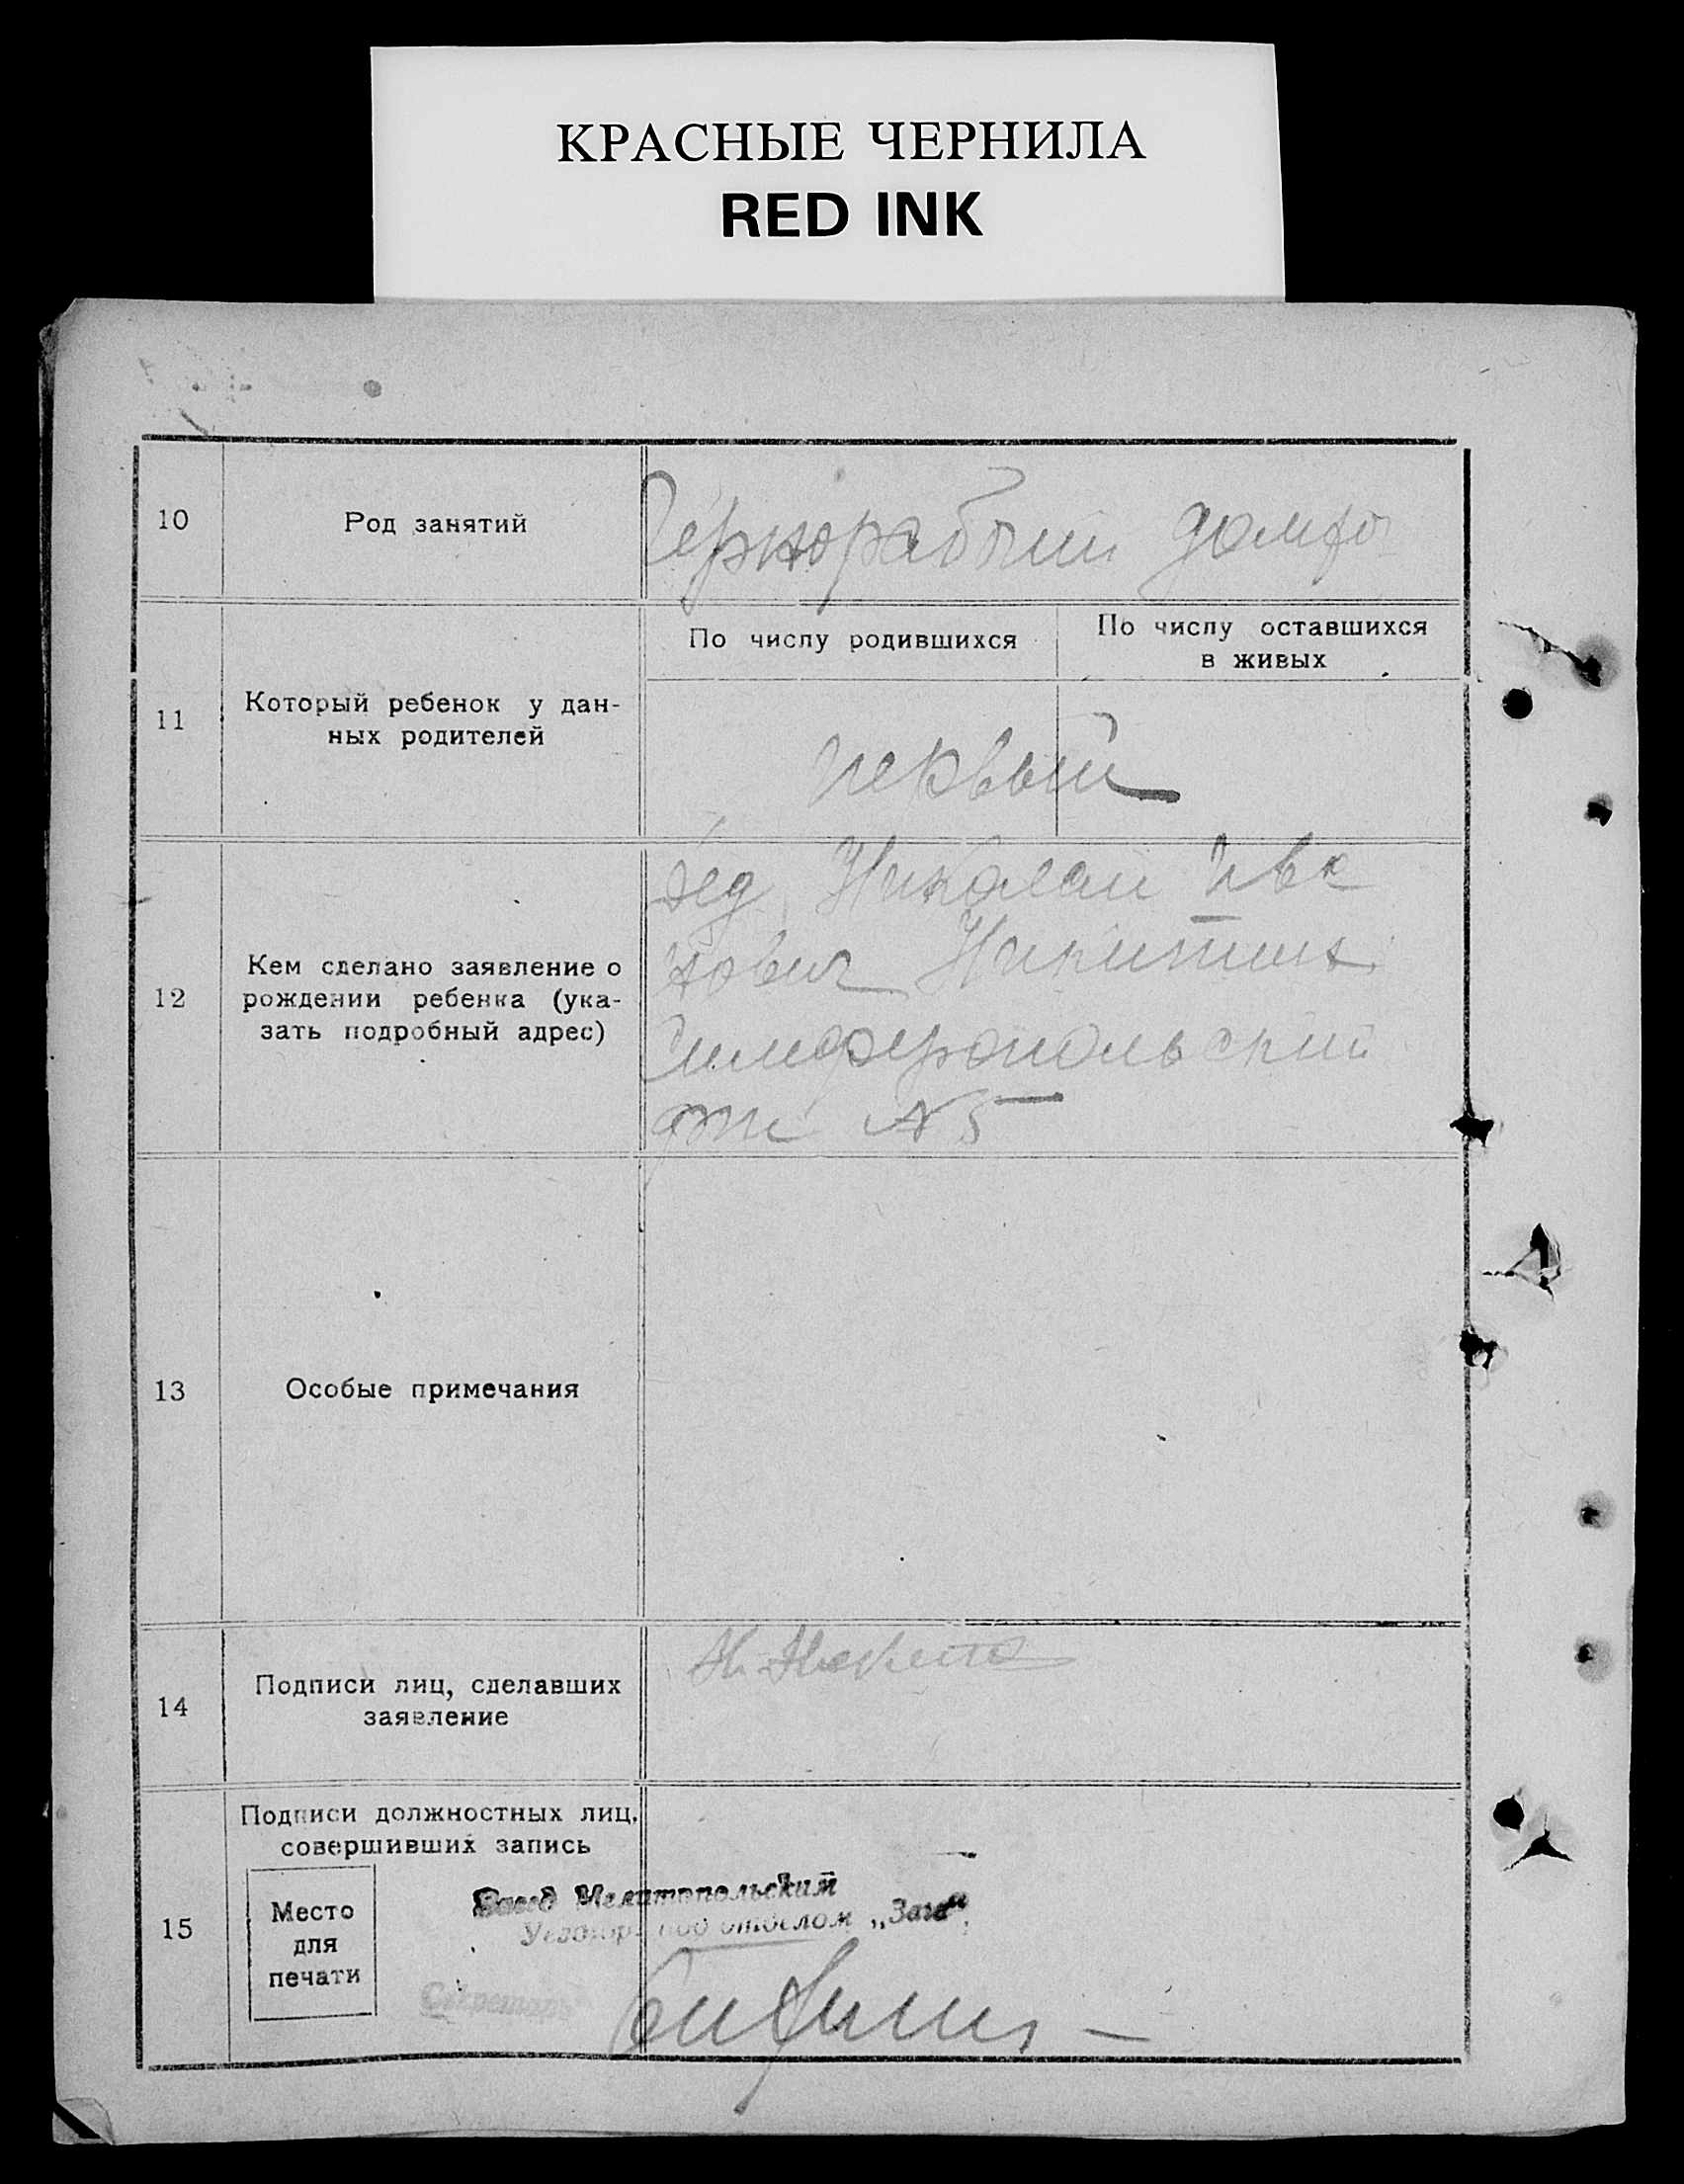 КРАСНЫЕ ЧЕРНИЛА
RED INK
10
Род занятий
Чернорабочий
11
Который ребенок у дан-
ных родителей
По числу родившихся
По числу оставшихся
в живых
первый
12
Кем сделано заявление о
рождении ребенка (ука-
зать подробный адрес)
дед Николай Ива
нович Никитин
Симферопольский
N 5
13
Особые примечания
14
Подписи лиц, сделавших
заявление
15
Подписи должностных лиц,
совершивших запись
Место
для
печати
Завед Мелитопольским
под отделом „Загс“
Секретарь